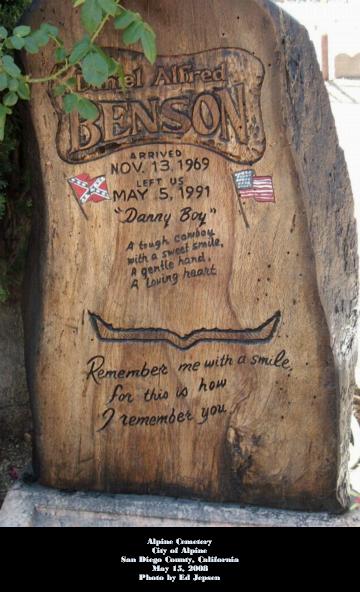 Daniel Alfred
BENSON
ARRIVED
NOV. 13, 1969
LEFT US
MAY 5, 1991
"Danny Boy"
A tough cowboy
with a sweet smile,
A gentle hand,
A loving heart
Remember me with a smile,
for this is how
I remember you.
Alpine Cemetery
City of Alpine
San Diego County, California
May 15, 2008
Photo by Ed Jepsen